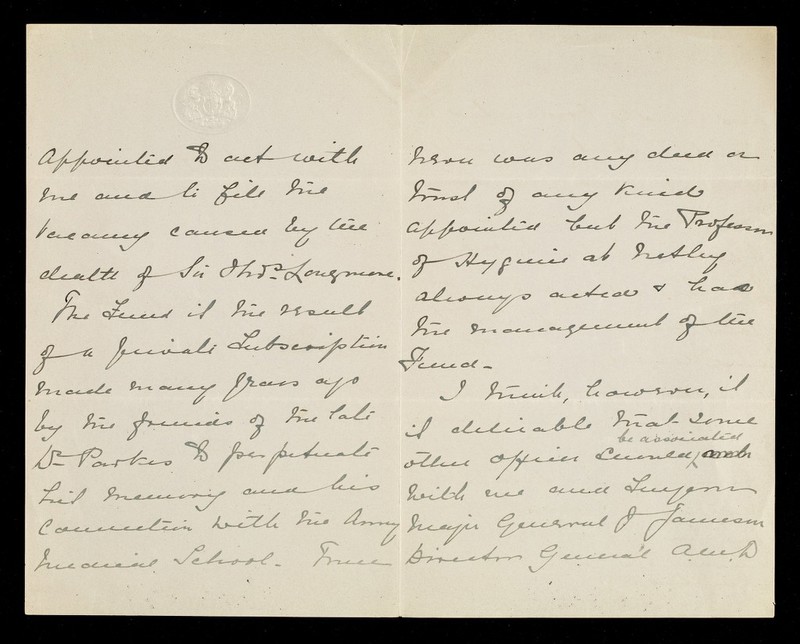 appointed to act with
me and to fill the
vacancy caused by the
death of Sir Thos. Longmore.
The Fund is the result
of a private Subscription
made many years ago
by the friends of the late
Dr Parkes to perpetuate
his memory and his
Connection with the Army
Medical School. There
never was any deed or
trust of any kind
appointed but the Professor
of Hygiene at Netley
always acted & had
the management of the
Fund.
I think, however, it
is desirable that some
be associated
other officer should
with me and Surgeon
Major General J Jameson
Director General A.M.D